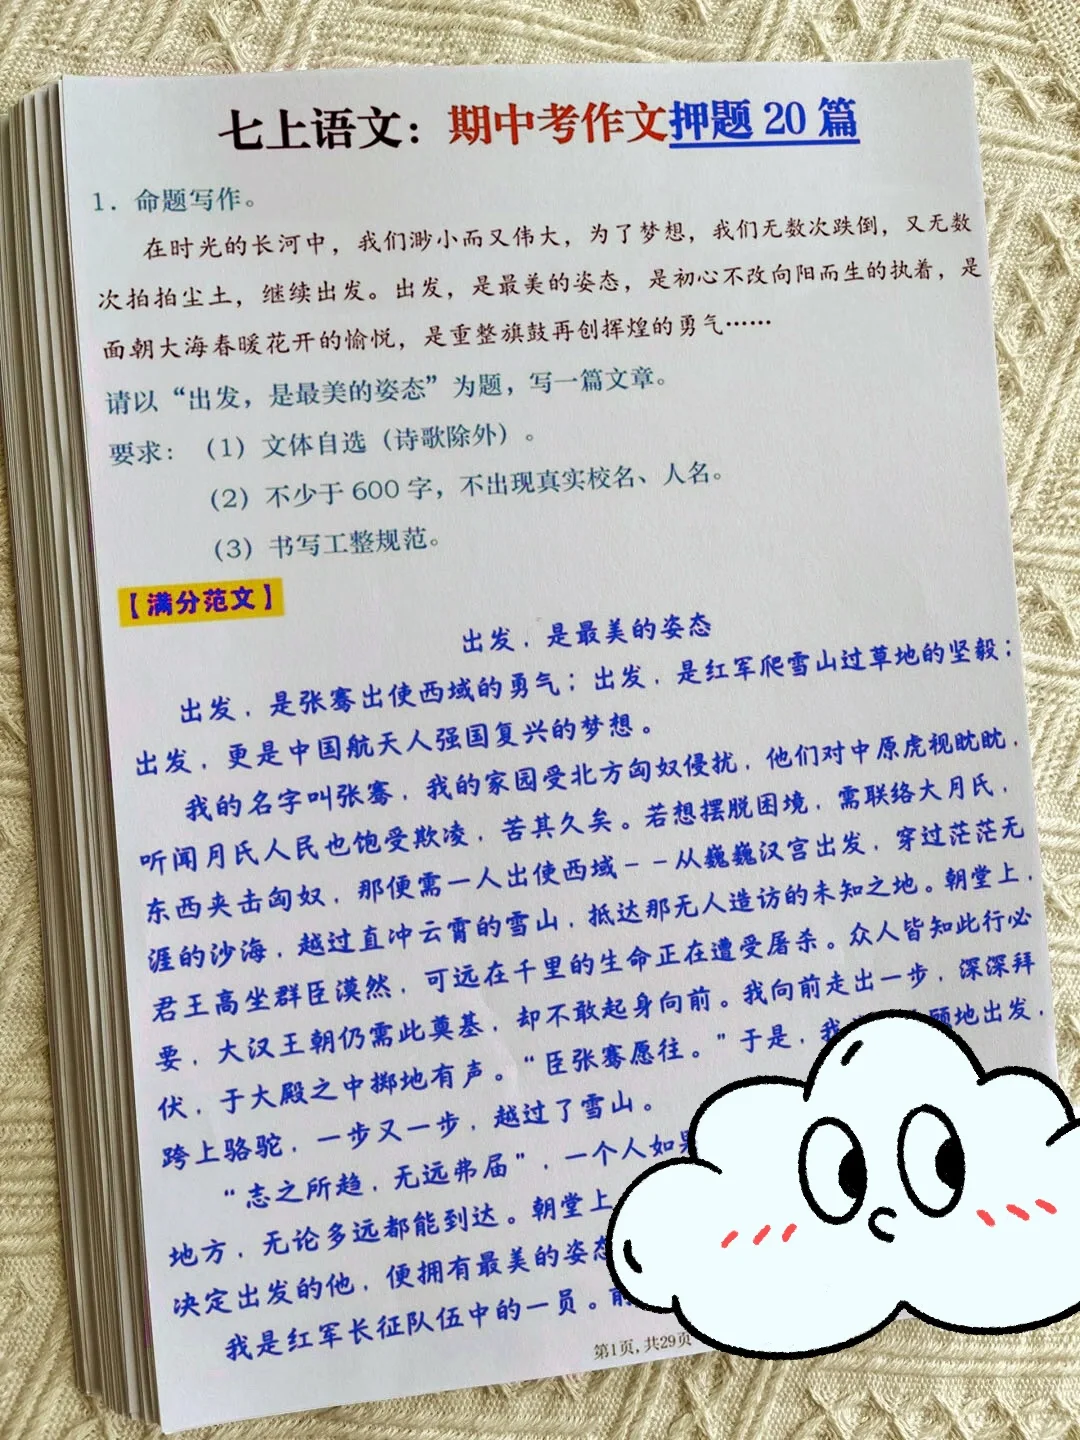 七上语文：期中考作文押题20篇
1．命题写作。
在时光的长河中，我们渺小而又伟大，为了梦想，我们无数次跌倒，又无数
次拍拍尘土，继续出发。出发，是最美的姿态，是初心不改向阳而生的执着，是
面朝大海春暖花开的愉悦，是重整旗鼓再创辉煌的勇气……
请以“出发，是最美的姿态”为题，写一篇文章。
要求：（1）文体自选（诗歌除外）。
（2）不少于600字，不出现真实校名、人名。
（3）书写工整规范。
【满分范文】
出发，是最美的姿态
出发，是张骞出使西域的勇气；出发，是红军爬雪山过草地的坚毅；
出发，更是中国航天人强国复兴的梦想。
我的名字叫张骞，我的家园受北方匈奴侵扰，他们对中原虎视眈眈，
听闻月氏人民也饱受欺凌，苦其久矣。若想摆脱困境，需联络大月氏，
东西夹击匈奴，那便需一人出使西域--从巍巍汉宫出发，穿过茫茫无
涯的沙海，越过直冲云霄的雪山，抵达那无人造访的未知之地。朝堂上，
君王高坐群臣漠然，可远在千里的生命正在遭受屠杀。众人皆知此行必
要，大汉王朝仍需此奠基，却不敢起身向前。我向前走出一步，深深拜
伏，于大殿之中掷地有声。“臣张骞愿往。”于是，我 顾地出发，
跨上骆驼，一步又一步，越过了雪山。
“志之所趋，无远弗届”，一个人如果
地方，无论多远都能到达。朝堂上
决定出发的他，便拥有最美的姿态
我是红军长征队伍中的一员。前
第1页，共29页